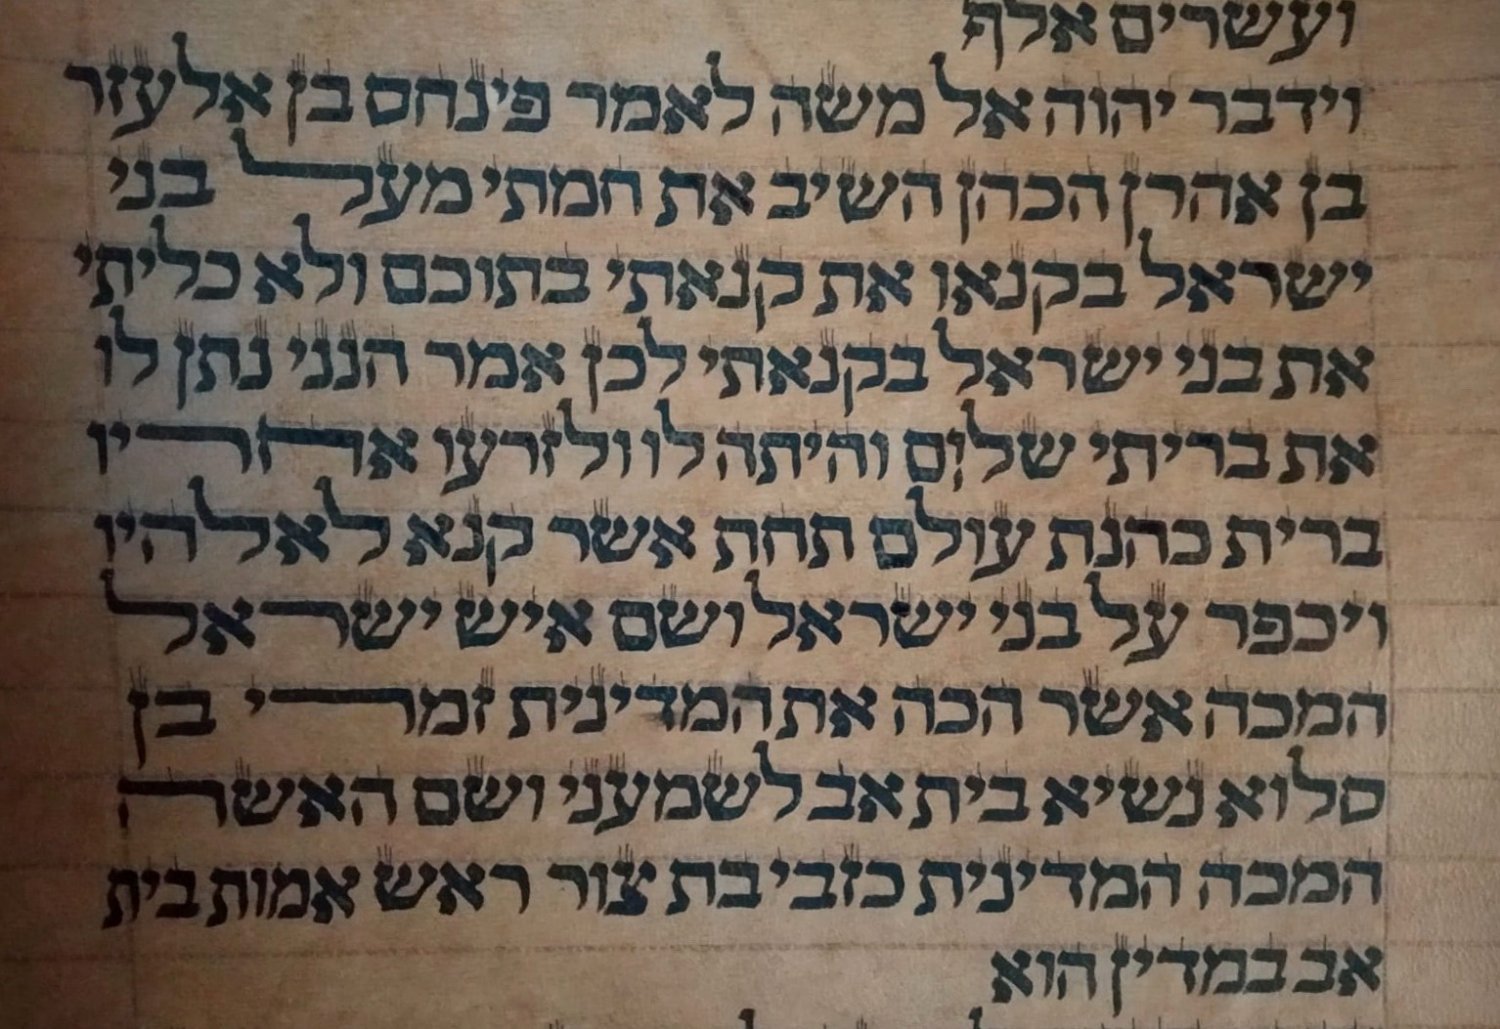 ועשרים אלף
וידבר יהוה אל משה לאמר פינחס בן אלעזר
בן אהרן הכהן השיב את חמתי מעל בני
ישראל בקנאו את קנאתי בתוכם ולא כליתי
את בני ישראל בקנאתי לכן אמר הנני נתן לו
את בריתי שלום והיתה לו ולזרעו אחריו
ברית כהנת עולם תחת אשר קנא לאלהיו
ויכפר על בני ישראל ושם איש ישראל
המכה אשר הכה את המדינית זמרי בן
סלוא נשיא בית אב לשמעני ושם האשה
המכה המדינית כזבי בת צור ראש אמות בית
אב במדין הוא